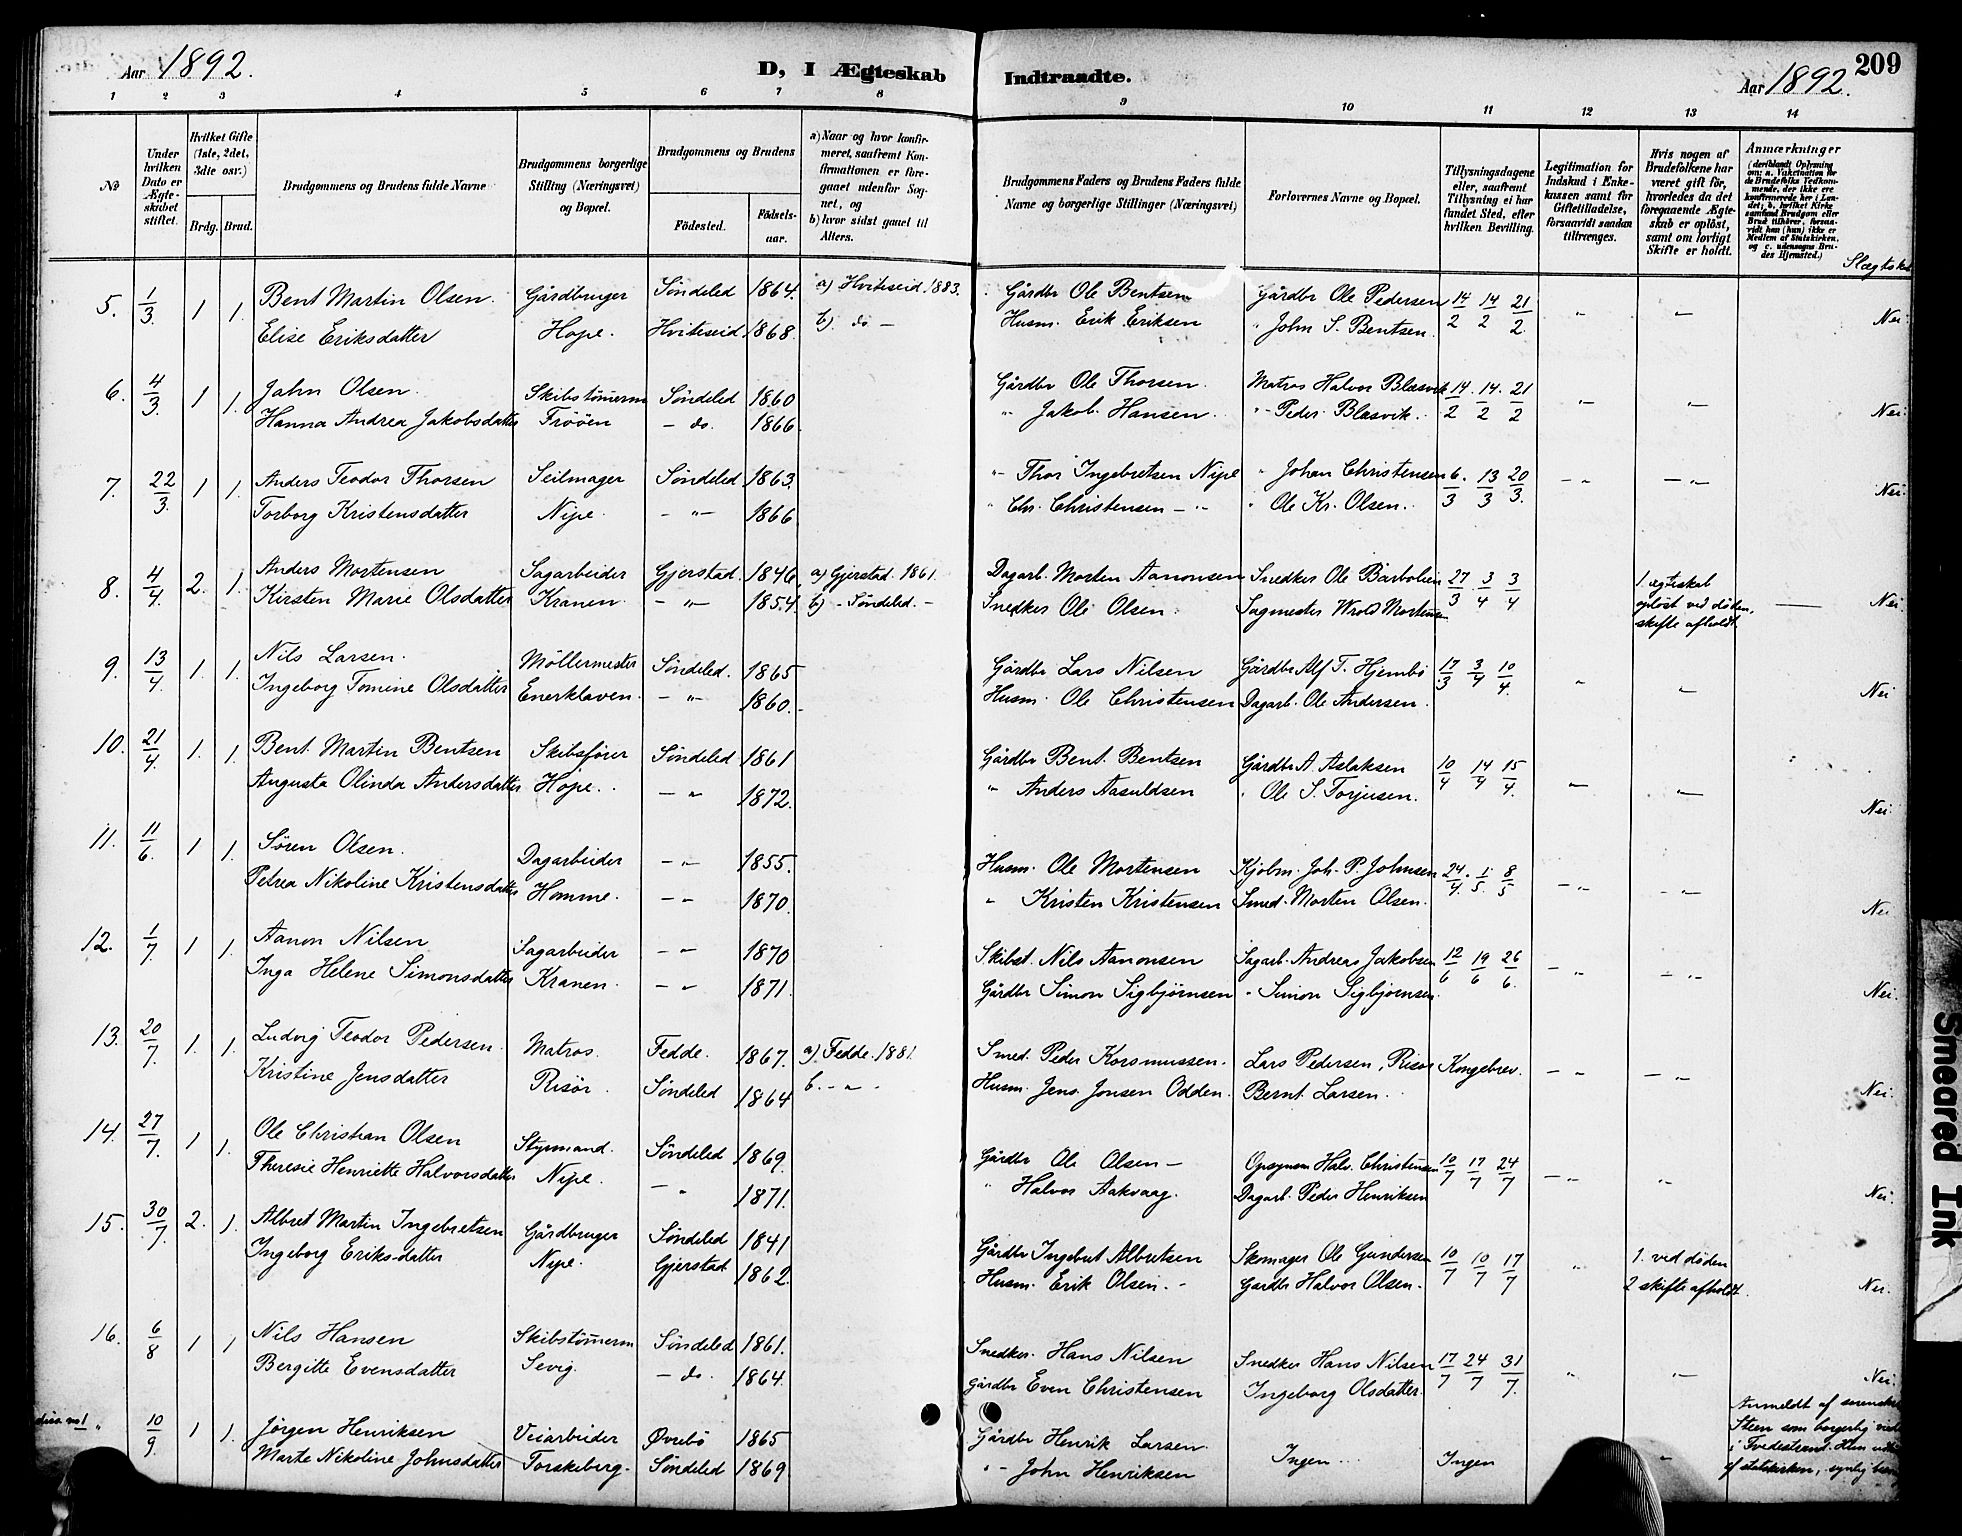 Aar 1892. D, I Ægteskab Indtraadte. Aar 1892. 209
1 2 3 4 5 6 7 8 9 10 11 12 13 14
No
Under hvilken Dato er Ægteskabet stiftet.
Hvilket Gifte (1ste, 2det, 3die osv.)
Brdg. Brud.
Brudgommens og Brudens fulde Navne
Brudgommens borgerlige Stilling (Næringsvei) og Bopæl.
Brudgommens og Brudens
Fødested. Fødselsaar.
a) Naar og hvor konfirmeret, saafremt Konfirmationen er foregaaet udenfor Sognet, og
b) hvor sidst gaaet til Alters.
Brudgommens Faders og Brudens Faders fulde Navne og borgerlige Stillinger (Næringsvei)
Forlovernes Navne og Bopæl.
Tillysningsdagene eller, saafremt Tillysning ei har fundet Sted, efter hvilken Bevilling.
Legitimation for Indskud i Enkekassen samt for Giftetilladelse, forsaavidt saadan tiltrænges.
Hvis nogen af Brudefolkene har været gift før, hvorledes da det foregaaende Ægteskab er opløst, samt om lovligt Skifte er holdt.
Anmærkninger (deriblandt Oplysning om: a. Vaccination for de Brudefolks Vedkommende, der ikke ere konfirmerede her i Landet; b. hvilket Kirkesamfund Brudgom eller Brud tilhører, forsaavidt han (hun) ikke er Medlem af Statskirken, og c. udensogns Brudes Hjemsted.)
Slægtsk.
5. 1/3 1 1. Bent Martin Olsen. Gårdbruger Søndeled 1864. a) Hviteseid 1883. Gårdbr Ole Bentsen Gårdbr Ole Pedersen 14/2 14/2 21/2 " "
Elise Eriksdatter Hope. Hviteseid 1868. b). do — Husm. Erik Eriksen " John S. Bentsen. Nei.
6. 4/3 1 1. Jahn Olsen. Skibstømerm Søndeled 1860 Gårdbr Ole Thorsen. Matros Halvor Blæsvik 14/2 14/2 21/2 " "
Hanna Andrea Jakobsdatter Frøöen — do. 1866. " Jakob Hansen. " Peder Blæsvik. Nei.
7. 22/3 1 1. Anders Teodor Thorsen Seilmager Søndeled 1863. " Thor Ingebretsen Nipe " Johan Christensen 6/3 13/3 20/3 — " — "
Torborg Kristensdatter Nipe. — " — 1866 " Chr. Christensen — " " Ole Kr. Olsen. Nei.
8. 4/4 2. 1. Anders Mortensen Sagarbeider Gjerstad. 1846 a) Gjerstad. 1861. Dagarb. Morten Aanonsen Snedker Ole 27/3 3/4 3/4 1 ægteskab
Kirsten Marie Olsdatter Kranen. — " — 1854. b) — Søndeled. — Snedker Ole Olsen. Sagmester Wrold Mortensen opløst ved døden, — Nei.
skifte afholdt.
9. 13/4 1. 1. Nils Larsen. Møllermester Søndeled. 1865 Gårdbr Lars Nilsen Gårdbr Alf T. Hjembø 17/3 3/4 10/4 " "
Ingeborg Tomine Olsdatter Enerklaven. — " — 1860. Husm. Ole Christensen Dagarb. Ole Andersen. Nei
10. 21/4 1. 1. Bent Martin Bentsen Skibsfører Søndeled 1861 Gårdbr Bent. Bentsen Gårdbr A. Aslaksen 10/4 14/4 15/4 " "
Augusta Olinda Andersdatter Hope. — " 1872. " Anders Aasuldsen " Ole S. Torjusen. Nei.
11. 11/6 1 1. Søren Olsen. Dagarbeider — " — 1855. Husm. Ole Mortensen Kjøbm. Joh. P. Johnsen 24/4 1/5 8/5 — " — "
Petrea Nikoline Kristensdatter Homme. — " 1870. " Kristen Kristensen Smed. Morten Olsen. Nei
12. 1/7 1 1. Aanon Nilsen Sagarbeider — " 1870 Skibst. Nils Aanonsen Sagarb. Andreas Jakobsen 12/6 19/6 26/6 — " — "
Inga Helene Simonsdatter Kranen. — " 1871. Gårdbr Simon Sigbjørnsen " Simon Sigbjørnsen. Nei.
13. 20/7 1. 1. Ludvig Teodor Pedersen. Matros. Fedde. 1867. a) Fedde. 1881. Smed. Peder Korsmussen. Lars Pedersen, Risør Kongebrev. — " — "
Kristine Jensdatter Risør. Søndeled 1864 b. — " Husm. Jens Jonsen Odden. Bernt Larsen. Nei.
14. 27/7 1 1. Ole Christian Olsen Styrmand. Søndeled 1869. Gårdbr Ole Olsen — Opsynsm Halv. Christensen 10/7 17/7 24/7 — " "
Theresie Henriette Halvorsdatter Nipe. — " 1871. " Halvor Aakvaag. Dagarb. Peder Henriksen Nei.
15. 30/7. 2. 1. Albret Martin Ingebretsen Gårdbruger Søndeled 1841 Gårdbr Ingebret Albretsen Skomager Ole Gundersen 10/7 10/7 17/7 " 1. ved døden
Ingeborg Eriksdatter Nipe. Gjerstad 1862. Husm. Erik Olsen. — Gardbr Halvor Olsen. 2 skifte afholdt. Nei.
16. 6/8 1 1 Nils Hansen Skibstømerm Søndeled 1861. Snedker. Hans Nilsen Snedker Hans Nilsen 17/7 24/7 31/7. " "
Bergitte Evensdatter Sevig. — do. 1864. Gårdbr Even Christensen Ingeborg Olsdatter. Nei.
diss. no 1 " 10/9. 1 1. Jørgen Henriksen Veiarbeider Øvrebø 1865 Gårdbr Henrik Larsen. Ingen Ingen " Anmeldt af
Marte Nikoline Johnsdatter Torskeberg. Søndeled 1869 " John Henriksen Steen som borgerlig viede
i Tvedestrand. Han
af statskirken,
Smeared Ink